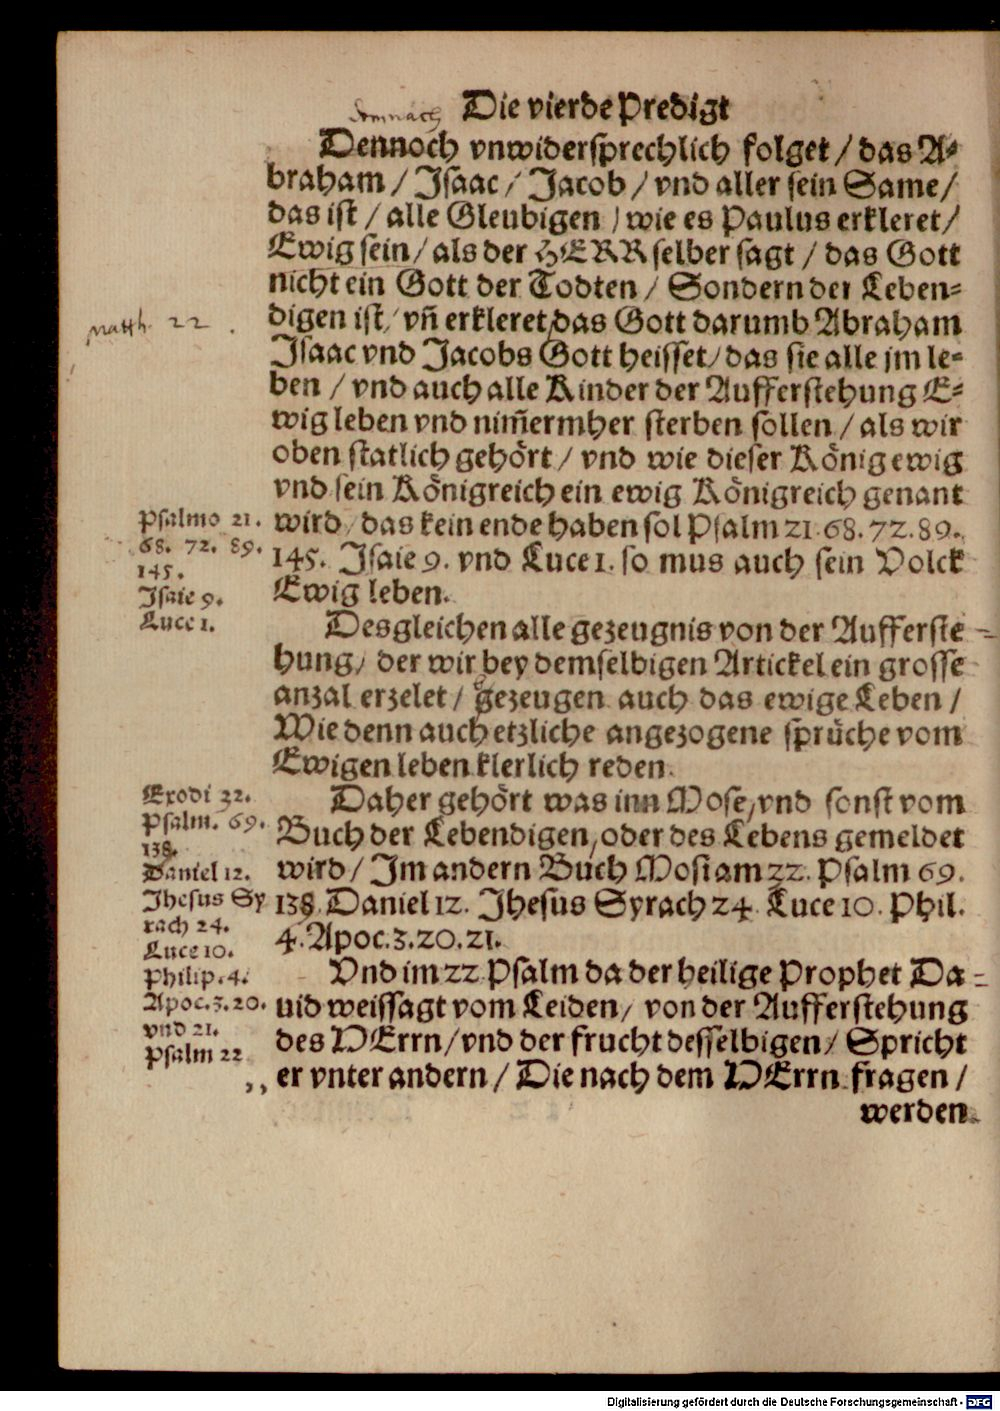 Die vierde Predigt
demnach
Dennoch vnwidersprechlich folget / das A⸗
braham / Isaac / Jacob / vnd aller sein Same /
das ist / alle Gleubigen / wie es Paulus erkleret /
Ewig sein / als der HERR selber sagt / das Gott
nicht ein Gott der Todten / Sondern der Leben⸗
digen ist / vñ erkleret / das Gott darumb Abraham
Matth. 22.
Isaac vnd Jacobs Gott heisset / das sie alle jm le⸗
ben / vnd auch alle Kinder der Aufferstehung E⸗
wig leben vnd nim̃ermher sterben sollen / als wir
oben statlich gehört / vnd wie dieser König ewig
vnd sein Königreich ein ewig Königreich genant
wird / das kein ende haben sol Psalm 21. 68. 72. 89.
145. Isaie 9. vnd Luce 1. so mus auch sein Volck
Ewig leben.
Psalmo 21.
68. 72. 89.
145.
Isaie 9.
Luce 1.
Desgleichen alle gezeugnis von der Aufferste
hung / der wir bey demselbigen Artickel ein grosse
anzal erzelet / gezeugen auch das ewige Leben /
Wie denn auch etzliche angezogene sprüche vom
Ewigen leben klerlich reden.
Daher gehört was inn Mose / vnd sonst vom
Buch der Lebendigen / oder des Lebens gemeldet
wird / Im andern Buch Mosi am 32. Psalm 69.
138. Daniel 12. Jhesus Syrach 24. Luce 10. Phil.
4. Apoc. 3. 20. 21.
Exodi 32.
Psalm. 69.
138.
Daniel 12.
Jhesus Sy
rach 24.
Luce 10.
Philip. 4.
Apoc. 3. 20.
vnd 21.
Psalm 22
Vnd im 22 Psalm da der heilige Prophet Da
uid weissagt vom Leiden / von der Aufferstehung
des HErrn / vnd der frucht desselbigen / Spricht
„ er vnter andern / Die nach dem HErrn fragen /
werden
Digitalisierung gefördert durch die Deutsche Forschungsgemeinschaft - DFG